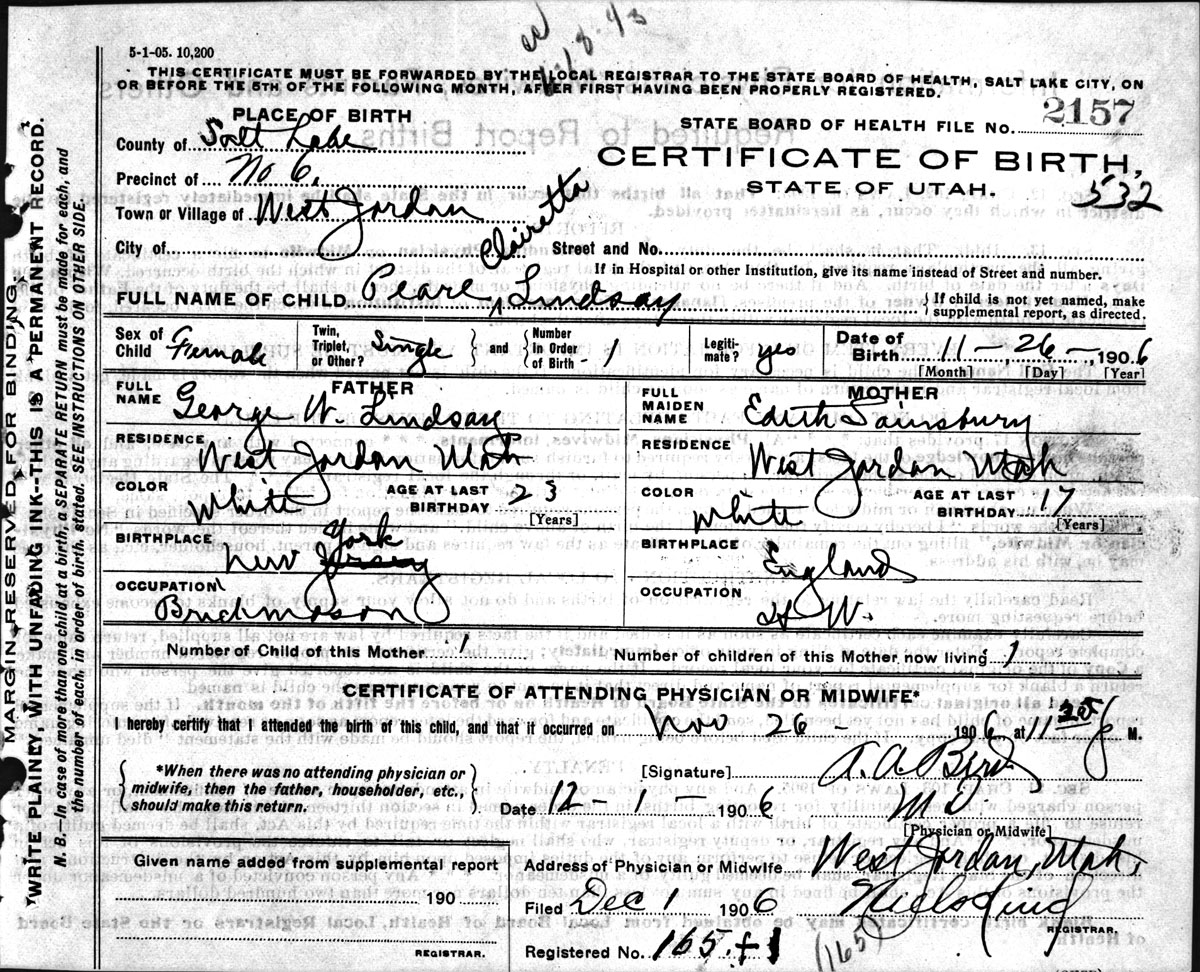 5-1-05. 10,200
THIS CERTIFICATE MUST BE FORWARDED BY THE LOCAL REGISTRAR TO THE STATE BOARD OF HEALTH, SALT LAKE CITY, ON
OR BEFORE THE 5TH OF THE FOLLOWING MONTH, AFTER FIRST HAVING BEEN PROPERLY REGISTERED.
PLACE OF BIRTH
STATE BOARD OF HEALTH FILE NO. 2157
County of Salt Lake
CERTIFICATE OF BIRTH,
Precinct of No 6.
STATE OF UTAH.
532
Town or Village of West Jordan
City of
Street and No.
If in Hospital or other Institution, give its name instead of Street and number.
Clairetta
FULL NAME OF CHILD Pearl ^ Lindsay
{ If child is not yet named, make
supplemental report, as directed.
Sex of Child Female
Twin, Triplet, or Other? Single } and { Number In Order of Birth 1
Legitimate? yes
Date of Birth 11 - 26 - 1906
[Month] [Day] [Year]
FATHER
FULL NAME George W. Lindsay
RESIDENCE West Jordan Utah
COLOR White
AGE AT LAST BIRTHDAY 23
[Years]
BIRTHPLACE New Jersey York
OCCUPATION Brickmason
MOTHER
FULL MAIDEN NAME Edith Sainsbury
RESIDENCE West Jordan Utah
COLOR White
AGE AT LAST BIRTHDAY 17
[Years]
BIRTHPLACE England
OCCUPATION H W.
Number of Child of this Mother 1
Number of children of this Mother now living 1
CERTIFICATE OF ATTENDING PHYSICIAN OR MIDWIFE*
I hereby certify that I attended the birth of this child, and that it occurred on Nov 26 - 1906 at 11 20 P M.
*When there was no attending physician or
midwife, then the father, householder, etc.,
should make this return.
[Signature] A. A. Bird
M D
[Physician or Midwife]
Date 12 - 1 - 1906
Given name added from supplemental report
190
REGISTRAR.
Address of Physician or Midwife West Jordan, Utah,
Filed Dec 1 1906
REGISTRAR.
Registered No. 165 + 1
(165)
MARGIN RESERVED FOR BINDING.
WRITE PLAINLY, WITH UNFADING INK--THIS IS A PERMANENT RECORD.
N. B.—In case of more than one child at a birth, a SEPARATE RETURN must be made for each, and
the number of each, in order of birth, stated. SEE INSTRUCTIONS ON OTHER SIDE.